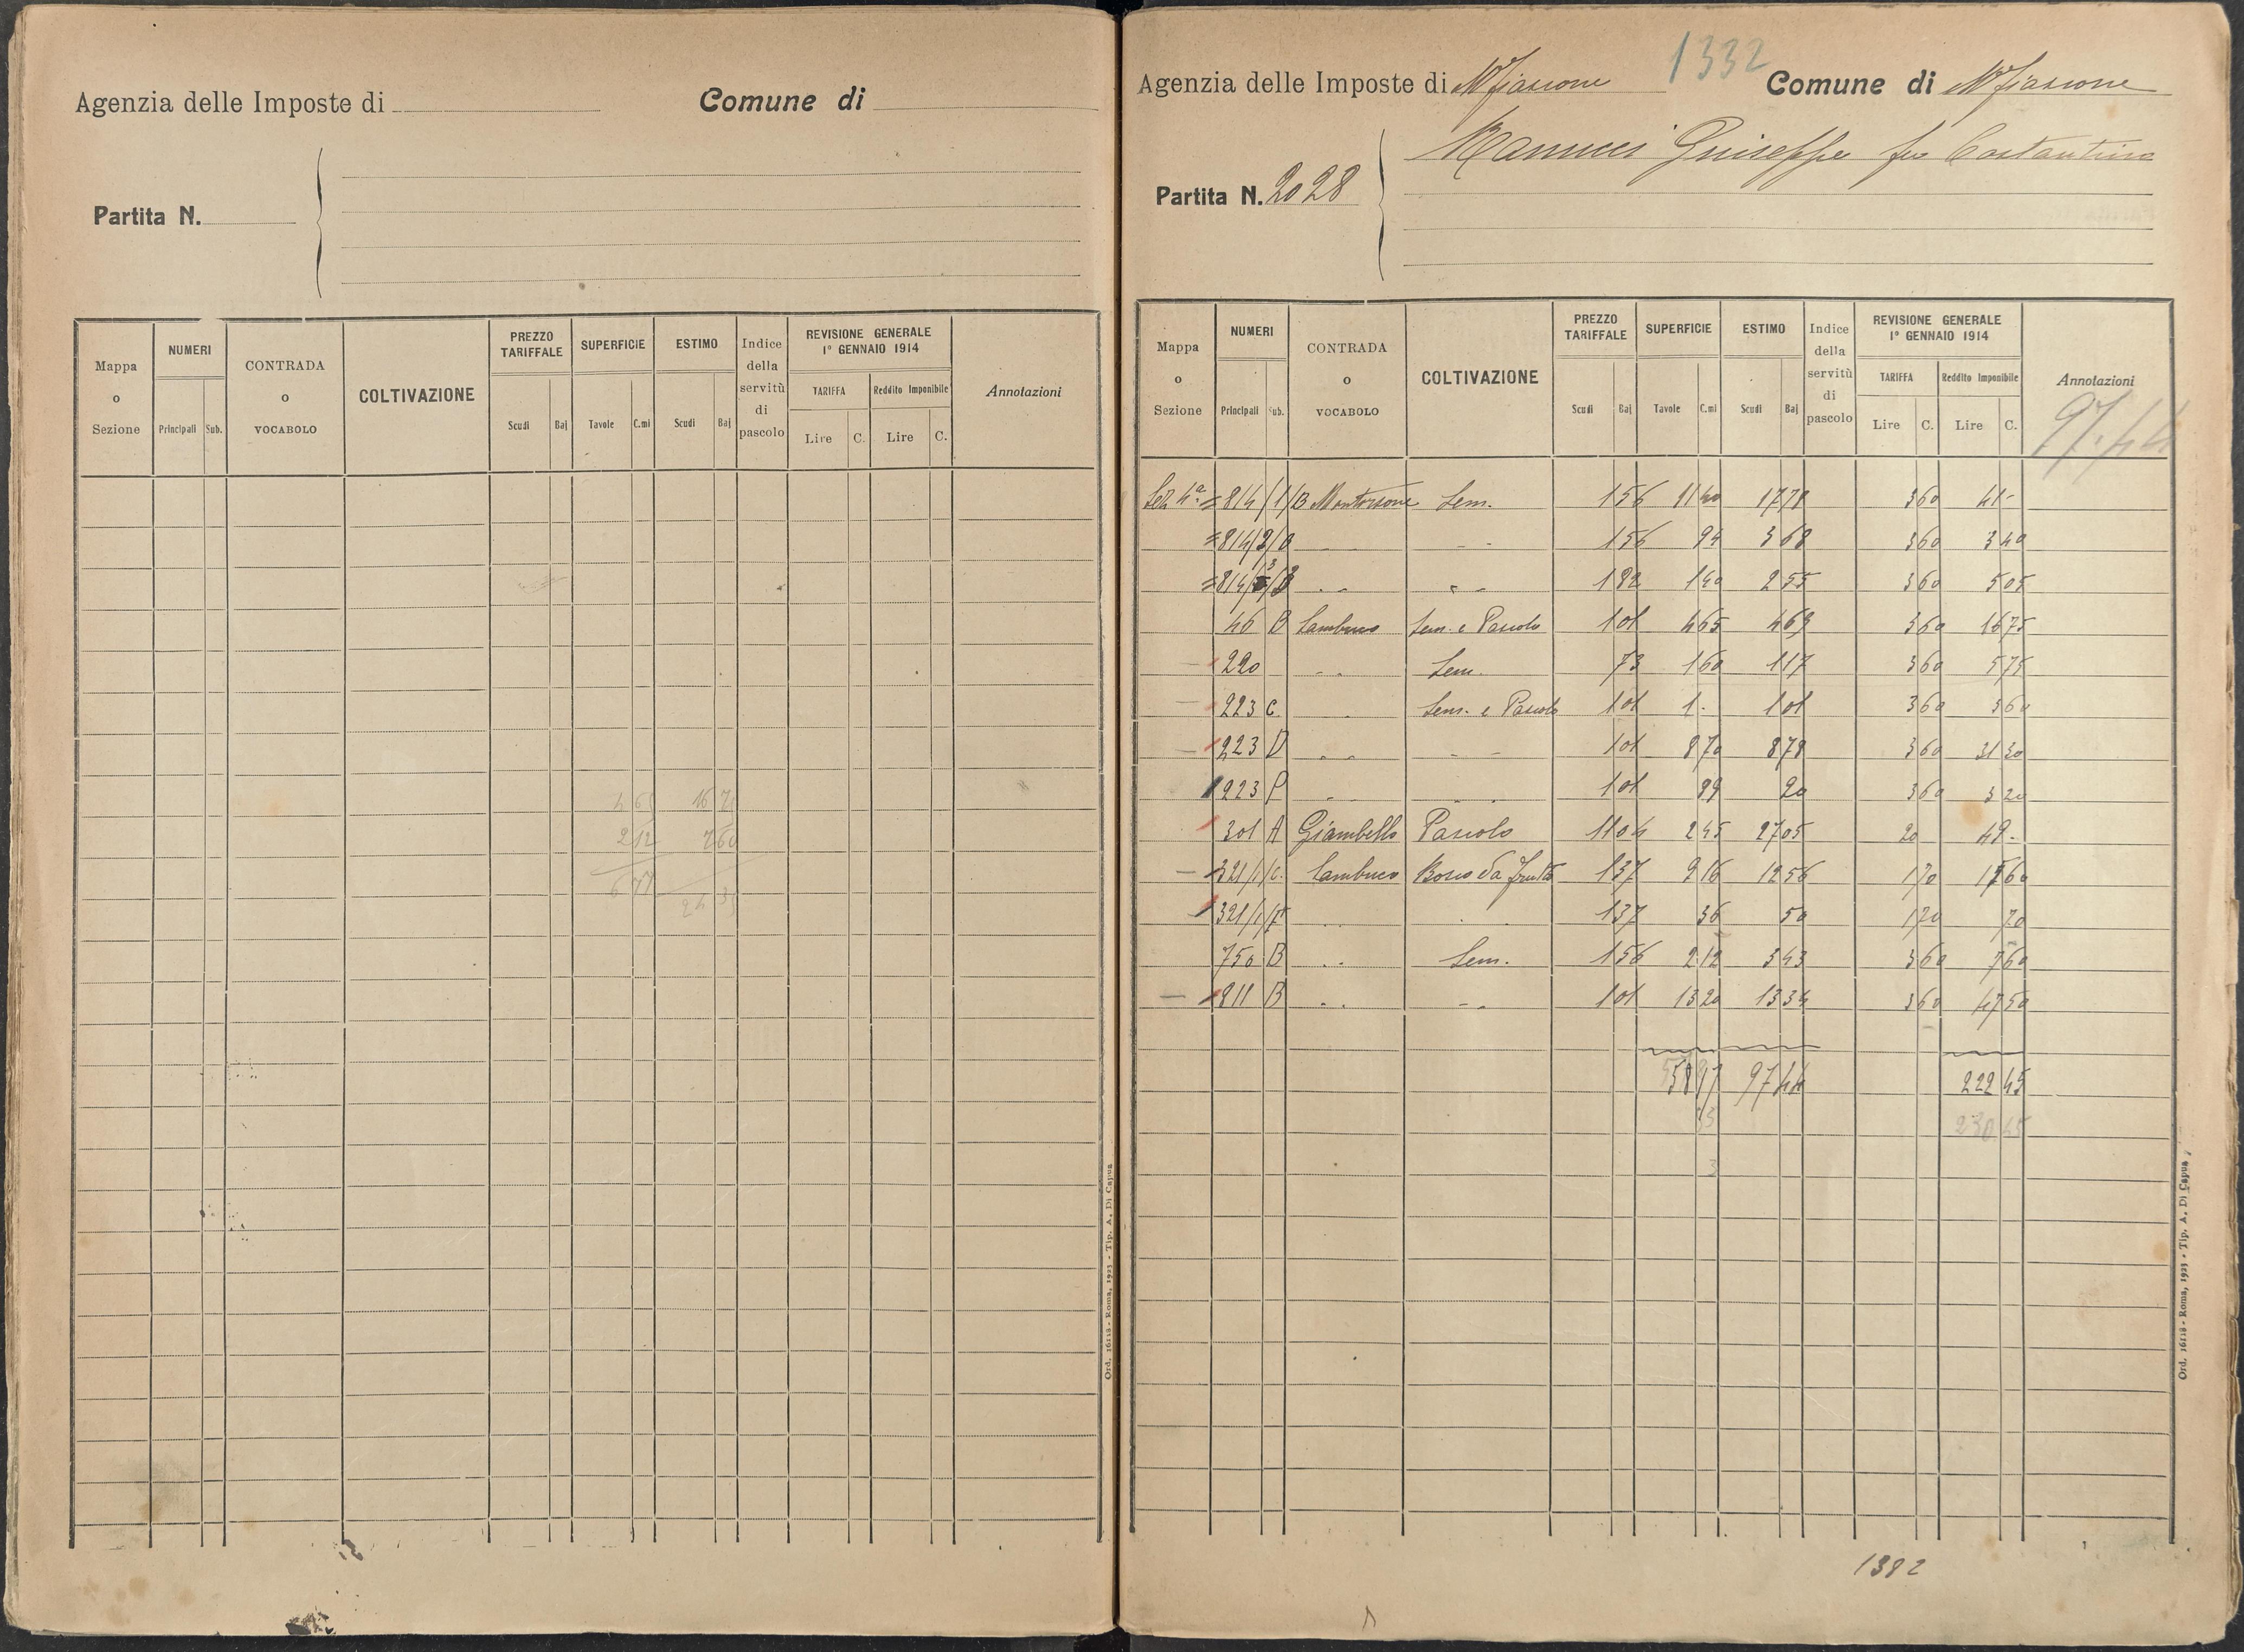 Agenzia delle Imposte di
Comune di
Partita N.
Mappa o Sezione
NUMERI
Principali Sub.
CONTRADA o VOCABOLO
COLTIVAZIONE
PREZZO TARIFFALE
Scudi Baj
SUPERFICIE
Tavole C.mi
ESTIMO
Scudi Baj
Indice della servitù di pascolo
REVISIONE GENERALE
1° GENNAIO 1914
TARIFFA
Lire C.
Reddito Imponibile
Lire C.
Annotazioni
2 12 7 60
6 77
Ord. 16118 - Roma, 1923 - Tip. A. Di Capua
1332
Agenzia delle Imposte di Mfiascone Comune di Mfiascone
Partita N. 2028
Manucci Giuseppe fu Costantino
Mappa o Sezione
NUMERI
Principali Sub.
CONTRADA o VOCABOLO
COLTIVAZIONE
PREZZO TARIFFALE
Scudi Baj
SUPERFICIE
Tavole C.mi
ESTIMO
Scudi Baj
Indice della servitù di pascolo
REVISIONE GENERALE
1° GENNAIO 1914
TARIFFA
Lire C.
Reddito Imponibile
Lire C.
Annotazioni
97.44
Sez 4ª = 814/1/B Sem. 1 56 11 40 17 78 3 60 41 -
= 814/2/B 1 56 94 3 68 3 60 3 40
= 814/3/B 1 82 1 40 2 55 3 60 5 05
46 B Sambuco Sem. e Pascolo 1 01 4 65 4 69 3 60 16 75
220 Sem. 73 1 60 1 17 3 60 5 75
223 C Sem. e Pascolo 1 01 1 - 1 01 3 60 3 60
223 D 1 01 8 70 8 78 3 60 31 30
223 1 01 89 20 3 60 3 20
301 A Giambello Pascolo 11 04 2 45 27 05 20 49 -
321/1/C Sambuco Bosco da frutto 1 37 9 16 12 56 1 70 60
321/1/F 1 37 36 50 1 70 70
750 B Sem. 1 56 2 12 3 43 3 60 7 60
811 B 1 01 13 20 13 34 3 60 47 50
58 97 44 222 45
230 45
Ord. 16118 - Roma, 1923 - Tip. A. Di Capua
1382